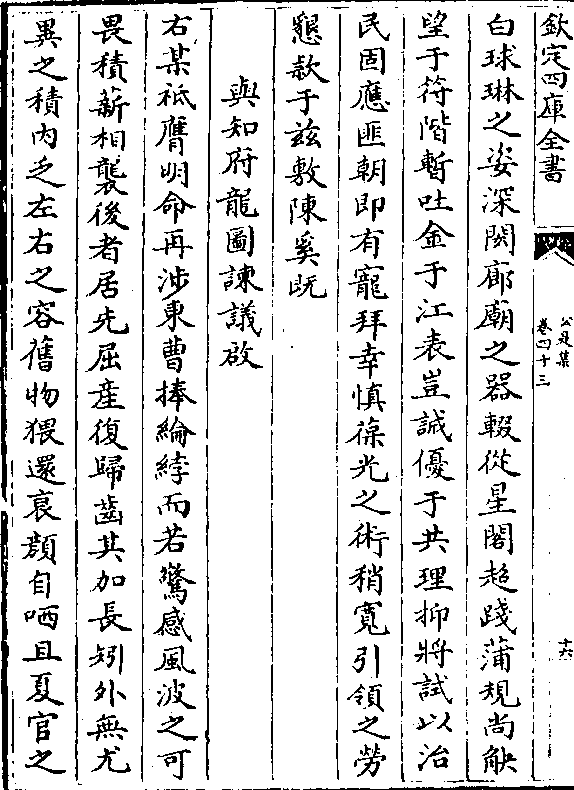 欽定四庫全書
公是集
卷四十三
十六
白球琳之姿深閟廊廟之器輟從星閣起踐蒲規尚觖
望于符階暫吐金于江表豈誠優于共理抑將試以治
民固應匪朝即有寵拜幸慎葆光之術稍寛引領之勞
懇款于兹敷陳奚既
與知府龍圖諫議啟
右某祗膺明命再渉東曹捧綸綍而若驚感風波之可
畏積薪相襲後者居先屈産復歸齒其加長矧外無尤
異之積内乏左右之容舊物猥還衰顔自哂且夏官之